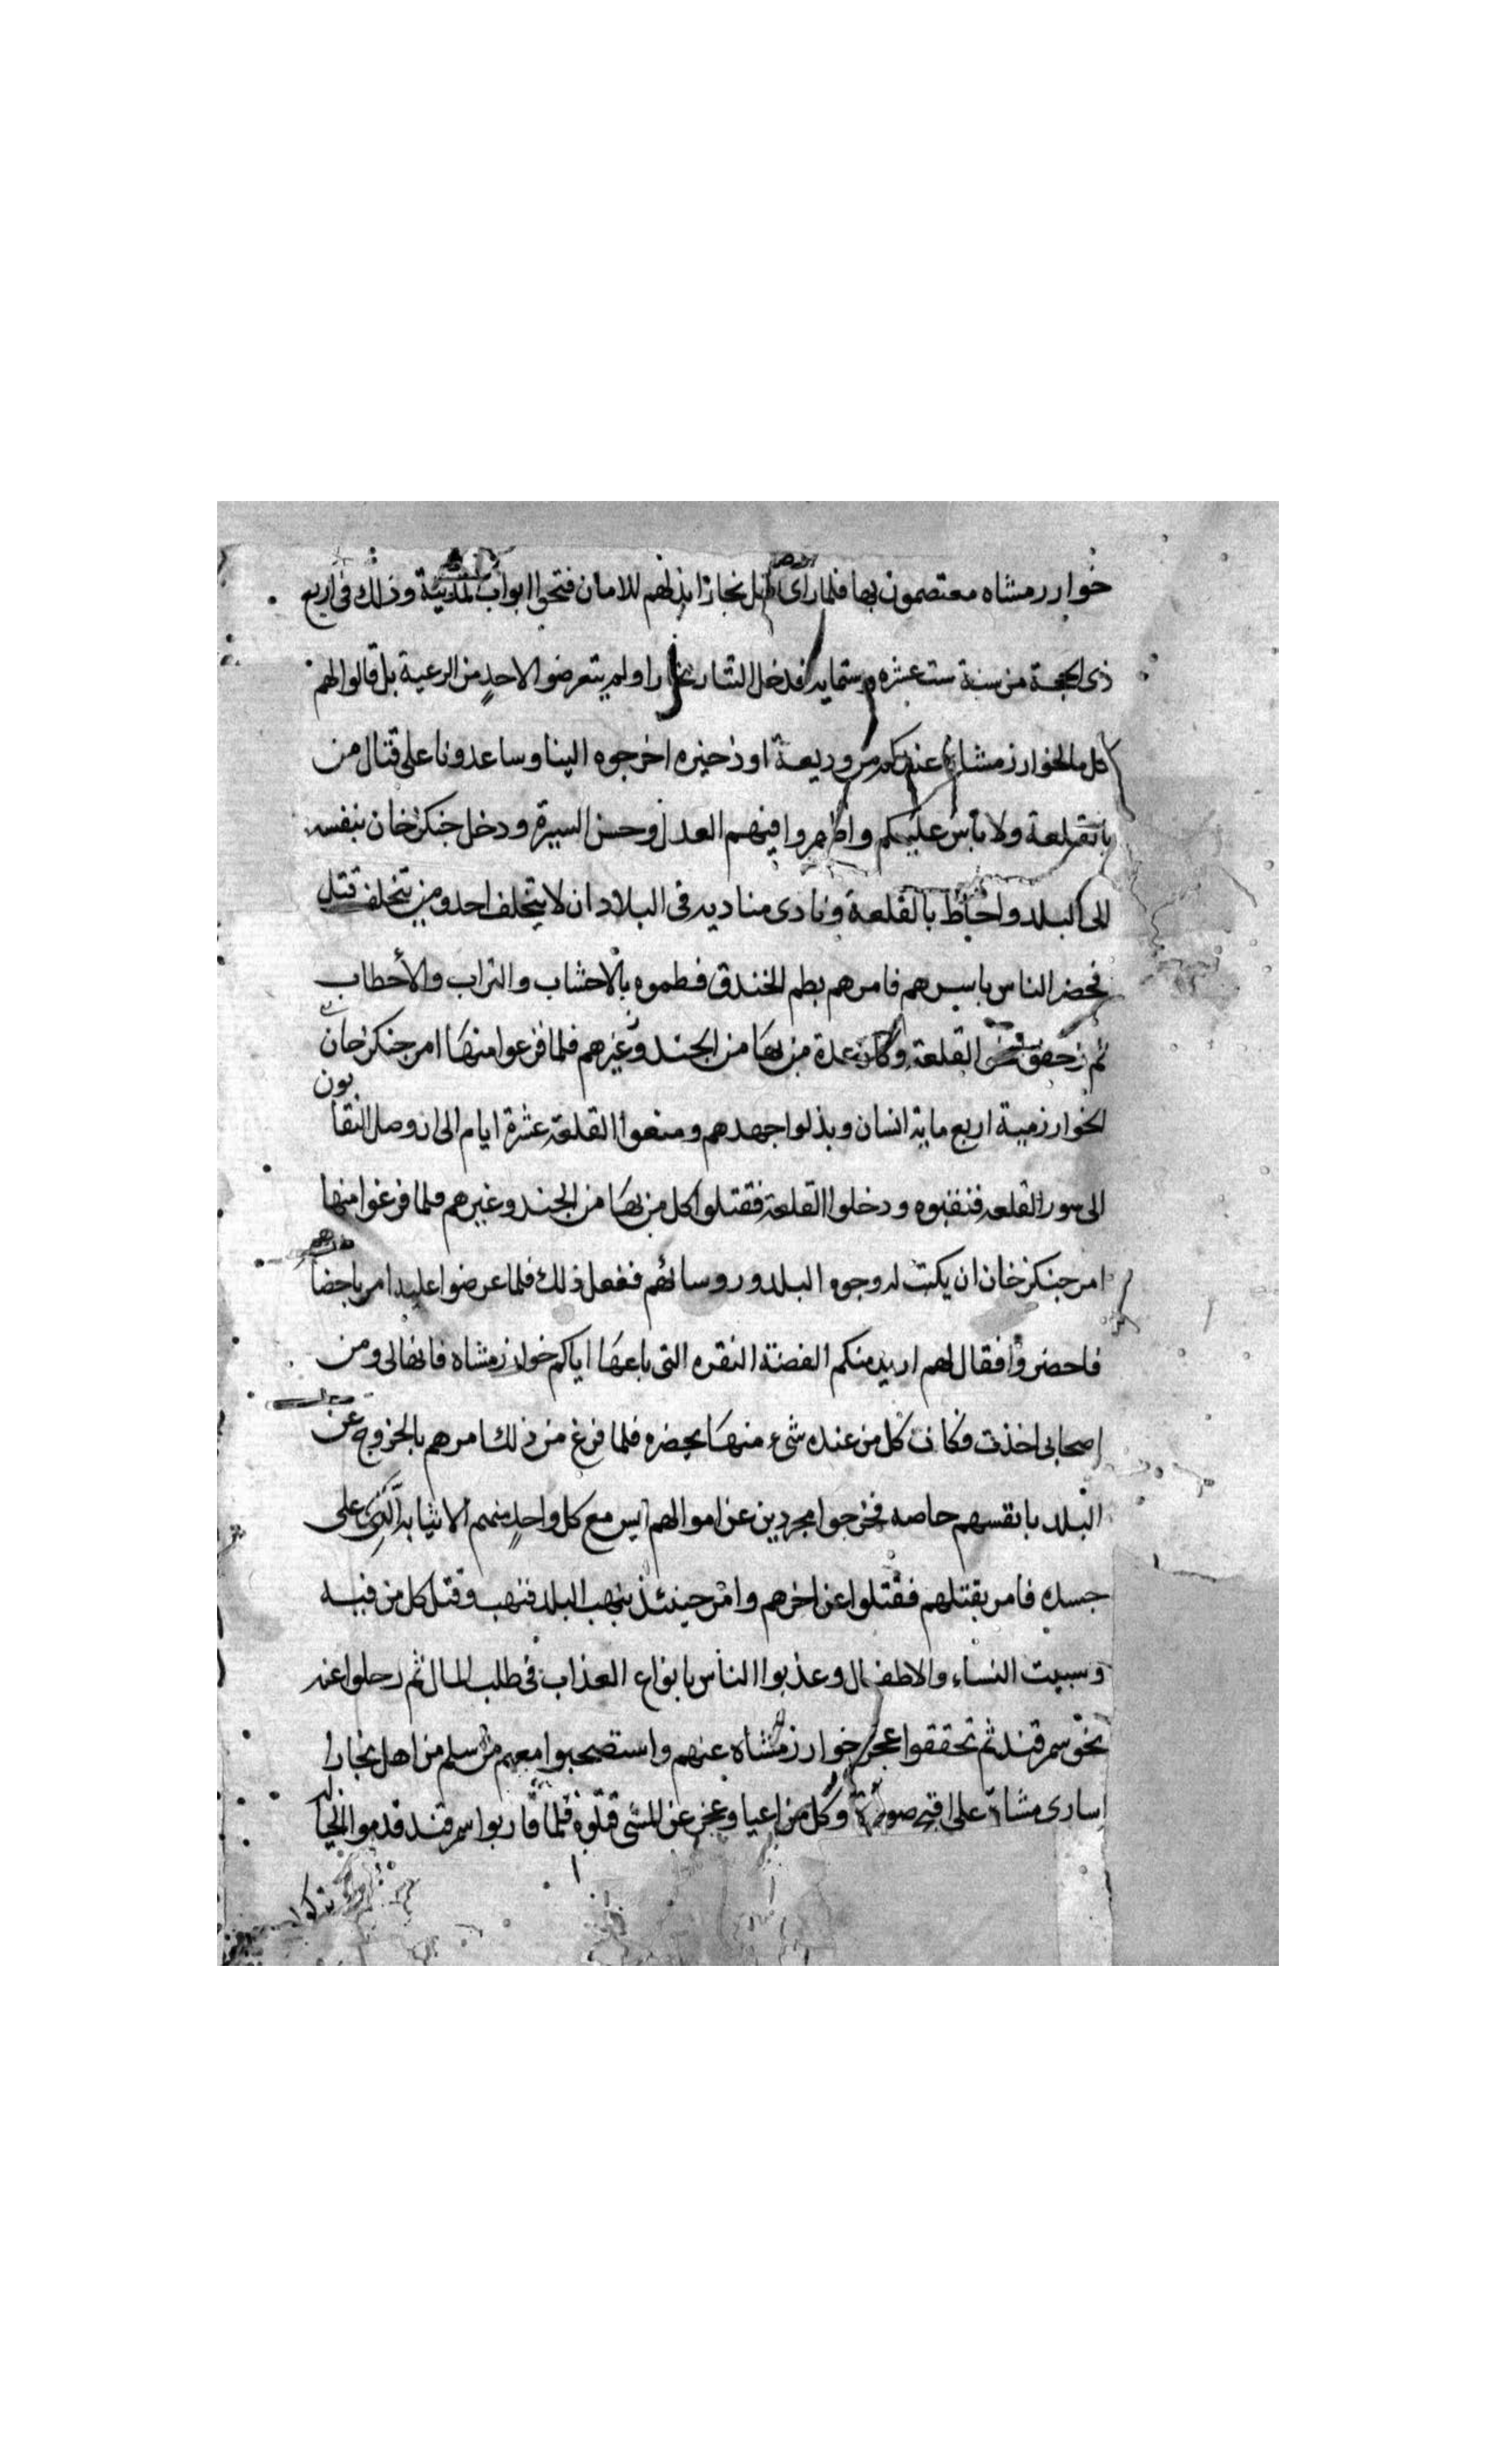 خوارزمشاه معتصمون بها فلما راى اهل بخارا بذلهم للامان فتحوا ابواب المدينة وذلك فى اربع
ذى الحجة من سنة ست عشره وستمايه فدخل التتار بخارا ولم يتعرضوا لاحدٍ من الرعية بل قالوا لهم
كل ما لخوارزمشاه عندكم من وديعة او ذخيره اخرجوه الينا وساعدونا على قتال من
بالقلعة ولا باس عليكم واظهروا فيهم العدل وحسن السيرة ودخل جنكزخان بنفسه
الى البلد واحاط بالقلعة ونادى مناديه فى البلاد ان لا يتخلف احد ومن يتخلف قتل
فحضر الناس باسرهم فامرهم بطم الخندق فطموه بالاخشاب والتراب والأحطاب
ثم زحفوا القلعة وكان عدة من بها من الجند وغيرهم فلما فرغوا منها امر جنكزخان
الخوارزمية اربع ماية انسان وبذلوا جهدهم ومنعوا القلعة عشرة ايام الى ان وصل النقابون
الى سور القلعه فنقبوه ودخلوا القلعة فقتلوا كل من بها من الجند وغيرهم فلما فرغوا منها
امر جنكزخان ان يكتب له وجوه البلد وروسائهم ففعل ذلك فلما عرضوا عليه امر باحضارهم
فاحضروا فقال لهم اريد منكم الفضة النقره التى باعها اياكم خوارزمشاه فانها لى ومن
اصحابى اخذت فكان كل من عنده شىء منها يحضره فلما فرغ من ذلك امرهم بالخروج عن
البلد بانفسهم خاصه فخرجوا مجردين عن اموالهم ليس مع كل واحدٍ منهم الا ثيابه الَّتى على
جسده فامر بقتلهم فقتلوا عن اخرهم وامر حينئذ بنهب البلد فنهب وقتل كل من فيه
وسبيت النساء والاطفال وعذبوا الناس بانواع العذاب فى طلب المال ثم رحلوا عنه
نحو سمرقند ثم تحققوا عجز خوارزمشاه عنهم واستصحبوا معهم من سلم من اهل بخارا
اسارى مشاة على اقبح صورة وكل من اعيا وعجز عن المشى قتلوه فلما قاربوا سمرقند قدموا الخيا